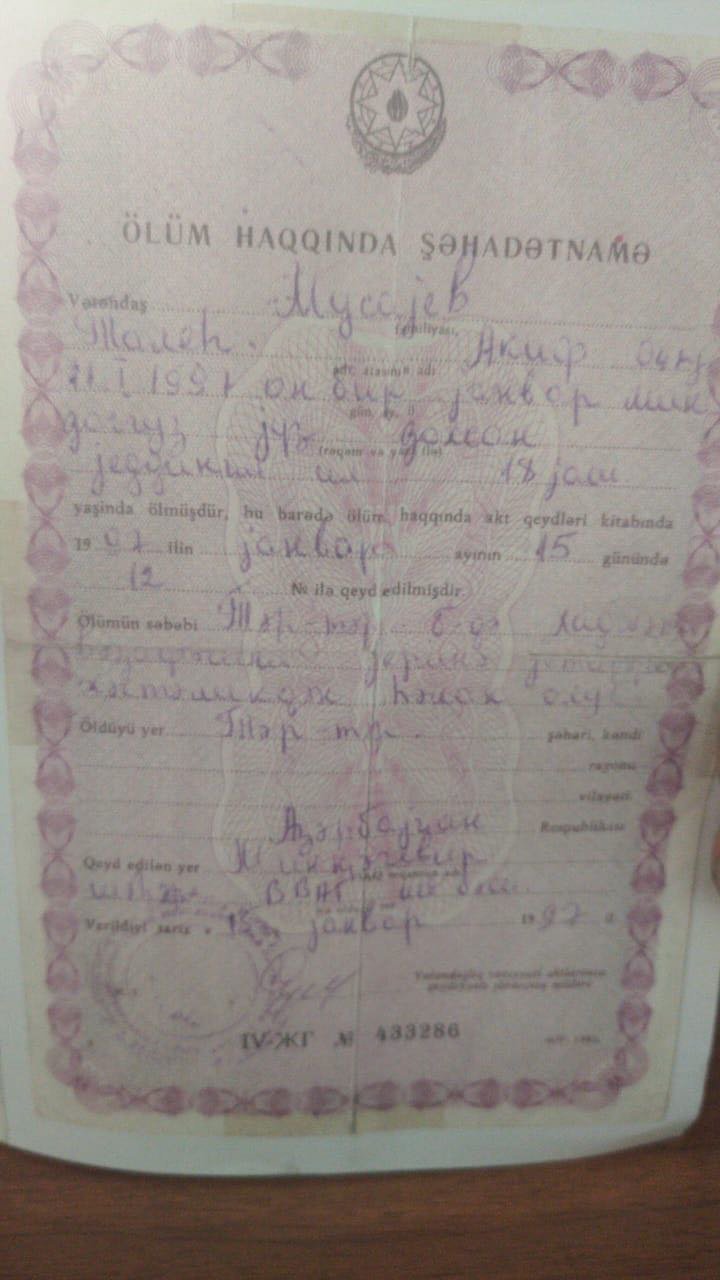 ÖLÜM HAQQINDA ŞƏHADƏTNAMƏ
Vətəndaş Мусајев
familiyası,
Талеһ. Акиф оғлу
adı, atasının adı
11. I 1997 он бир јанвар мин
gün, ay, il
доггуз јүз дохсан
(rəqəm və yazı ilə)
једдинҹи ил 18 јаш
yaşında ölmüşdür, bu barədə ölüm haqqında akt qeydləri kitabında
1997 ilin јанвар ayının 15 günündə
12 № ilə qeyd edilmişdir.
Ölümün səbəbi Тәр-тәр б-дә
јеринә
һәлак
Öldüyü yer Тәр-тәр. şəhəri, kəndi
rayonu
vilayəti
Азәрбајҹан Respublikası
Qeyd edilən yer Минҝәчевир
ВВАГ
Verildiyi tarix « 15 јанвар 1997 a.
Vətəndaşlıq vəziyyəti aktlarının
qeydiyyatı şöbəsinin müdiri
IV-ЖГ № 433286